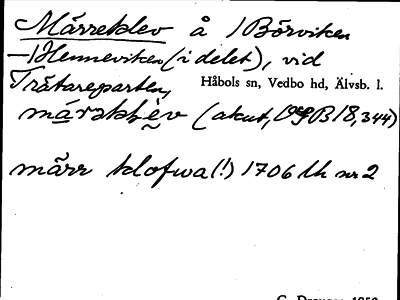 Märreklev å /Börviken
—/Henneviken (i delet), vid
Trätareparten,
Håbols sn, Vedbo hd, Älvsb. l.
(akut, OGB 18,344)
märr klofwa (!) 1706 lh nr 2